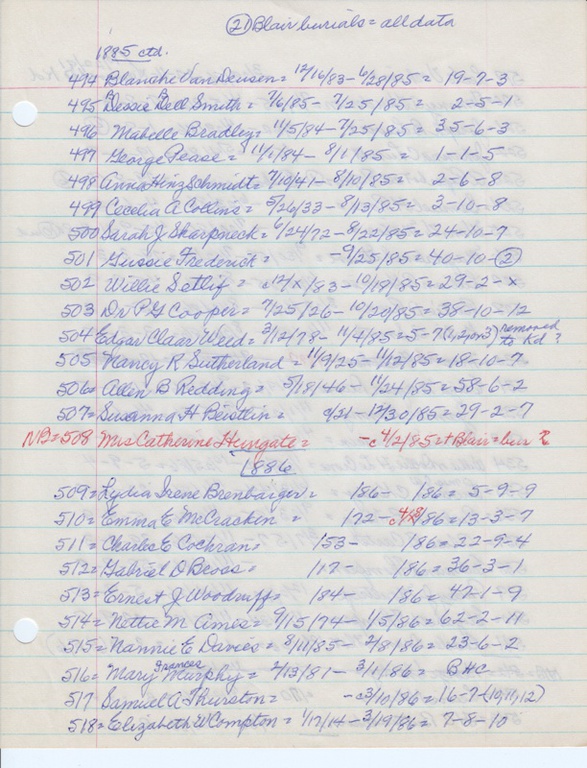 ② Blair burials = all data
1885 ctd.
494 Blanche Van Deusen = 12/16/83 - 6/28/85 = 19-7-3
495 Dessie Bell Smith = 7/6/85 - 7/25/85 = 2-5-1
496 Mabelle Bradley = 11/5/84 - 7/25/85 = 35-6-3
497 George Pease = 11/1/84 - 8/1/85 = 1-1-5
498 Anna Hinz Schmidt = 7/10/41 - 8/10/85 = 2-6-8
499 Cecelia A Collins = 5/26/33 - 8/13/85 = 3-10-8
500 Sarah J Sharpneck = 6/24/72 - 8/22/85 = 24-10-7
501 Gussie Frederick = - 9/25/85 = 40-10-②
502 Willie Setlif = c12/x/83 - 10/19/85 = 29-2-x
503 Dr P G Cooper = 7/25/26 - 10/20/85 = 38-10-12
504 Edgar Claar Weid = 3/12/78 - 11/4/85 = 5-7 (1,2,or 3) removed to Kd?
505 Nancy R Sutherland = 11/9/25 - 11/12/85 = 18-10-7
506 = Allen B Redding = 5/18/46 - 11/24/85 = 58-6-2
507 = Susanna H Beistlin = c/21 - 12/30/85 = 29-2-7
NB = 508 Mrs Catherine Hungate = - c4/2/85 = + Blair = bur ?
1886
509 = Lydia Irene Brenbarger = /86 - /86 = 5-9-9
510 = Emma E McCracken = /72 - /86 = 13-3-7
511 = Charles E Cochran = /53 - /86 = 22-9-4
512 = Gabriel D Beoss = /17 - /86 = 36-3-1
513 = Ernest J Woodruff = /84 - /86 = 42-1-9
514 = Nettie M Ames = 9/15/74 - 1/5/86 = 62-2-11
515 = Nannie E Davies = 8/11/85 - 2/8/86 = 23-6-2
516 = Mary Frances Murphy = 2/13/81 - 3/1/86 = BHC
517 Samuel A Thurston = - c3/10/86 = 16-7-(10,11,12)
518 = Elizabeth W Compton = 1/17/14 - 3/19/86 = 7-8-10